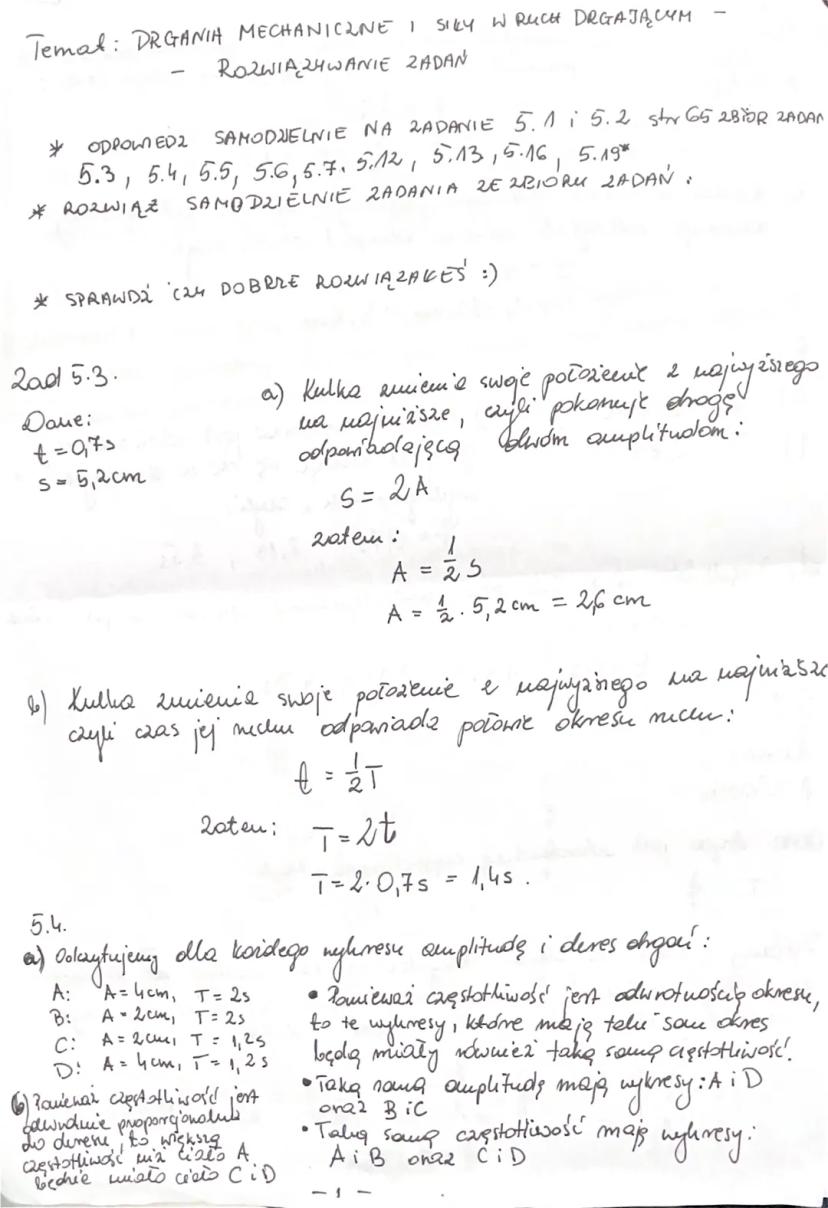 Temat: DRGANIA MECHANICZNE I SIŁY W RUCH DRGAJĄCYM –
– ROZWIĄZYWANIE ZADAŃ
* ODPOWIEDZ SAMODZIELNIE NA ZADANIE 5.1 i 5.2 str 65 ZBIÓR ZADAŃ
5.3, 5.4, 5.5, 5.6, 5.7. 5.12, 5.13, 5.16, 5.19*
* ROZWIĄŻ SAMODZIELNIE ZADANIA ZE ZBIORU ZADAŃ:
* SPRAWDŹ CZY DOBRZE ROZWIĄZAŁEŚ :)
Zad 5.3.
Dane:
t = 0,7s
s = 5,2cm
a) Kulka zmienia swoje położenie z najwyższego
na najniższe, czyli pokonuje drogę
odpowiadającą dwóm amplitudom:
S = 2A
zatem:
A = 1/2 S
A = 1/2 · 5,2 cm = 2,6 cm
b) Kulka zmienia swoje położenie z najwyższego na najniższe
czyli czas jej ruchu odpowiada połowie okresu ruchu:
t = 1/2 T
Zatem: T = 2t
T = 2·0,7s = 1,4s.
5.4.
a) Odczytujemy dla każdego wykresu amplitudę i okres drgań:
A: A = 4cm, T = 2s
B: A = 2cm, T = 2s
C: A = 2cm, T = 1,2s
D: A = 4cm, T = 1,2s
• Ponieważ częstotliwość jest odwrotnością okresu,
to te wykresy, które mają taki sam okres
będą miały również taką samą częstotliwość.
• Taką samą amplitudę mają wykresy: A i D
oraz B i C
• Taką samą częstotliwość mają wykresy:
A i B oraz C i D
b) Ponieważ częstotliwość jest
odwrotnie proporcjonalna
do okresu, to większą
częstotliwość niż ciało A
będzie miało ciało C i D
– 1 –